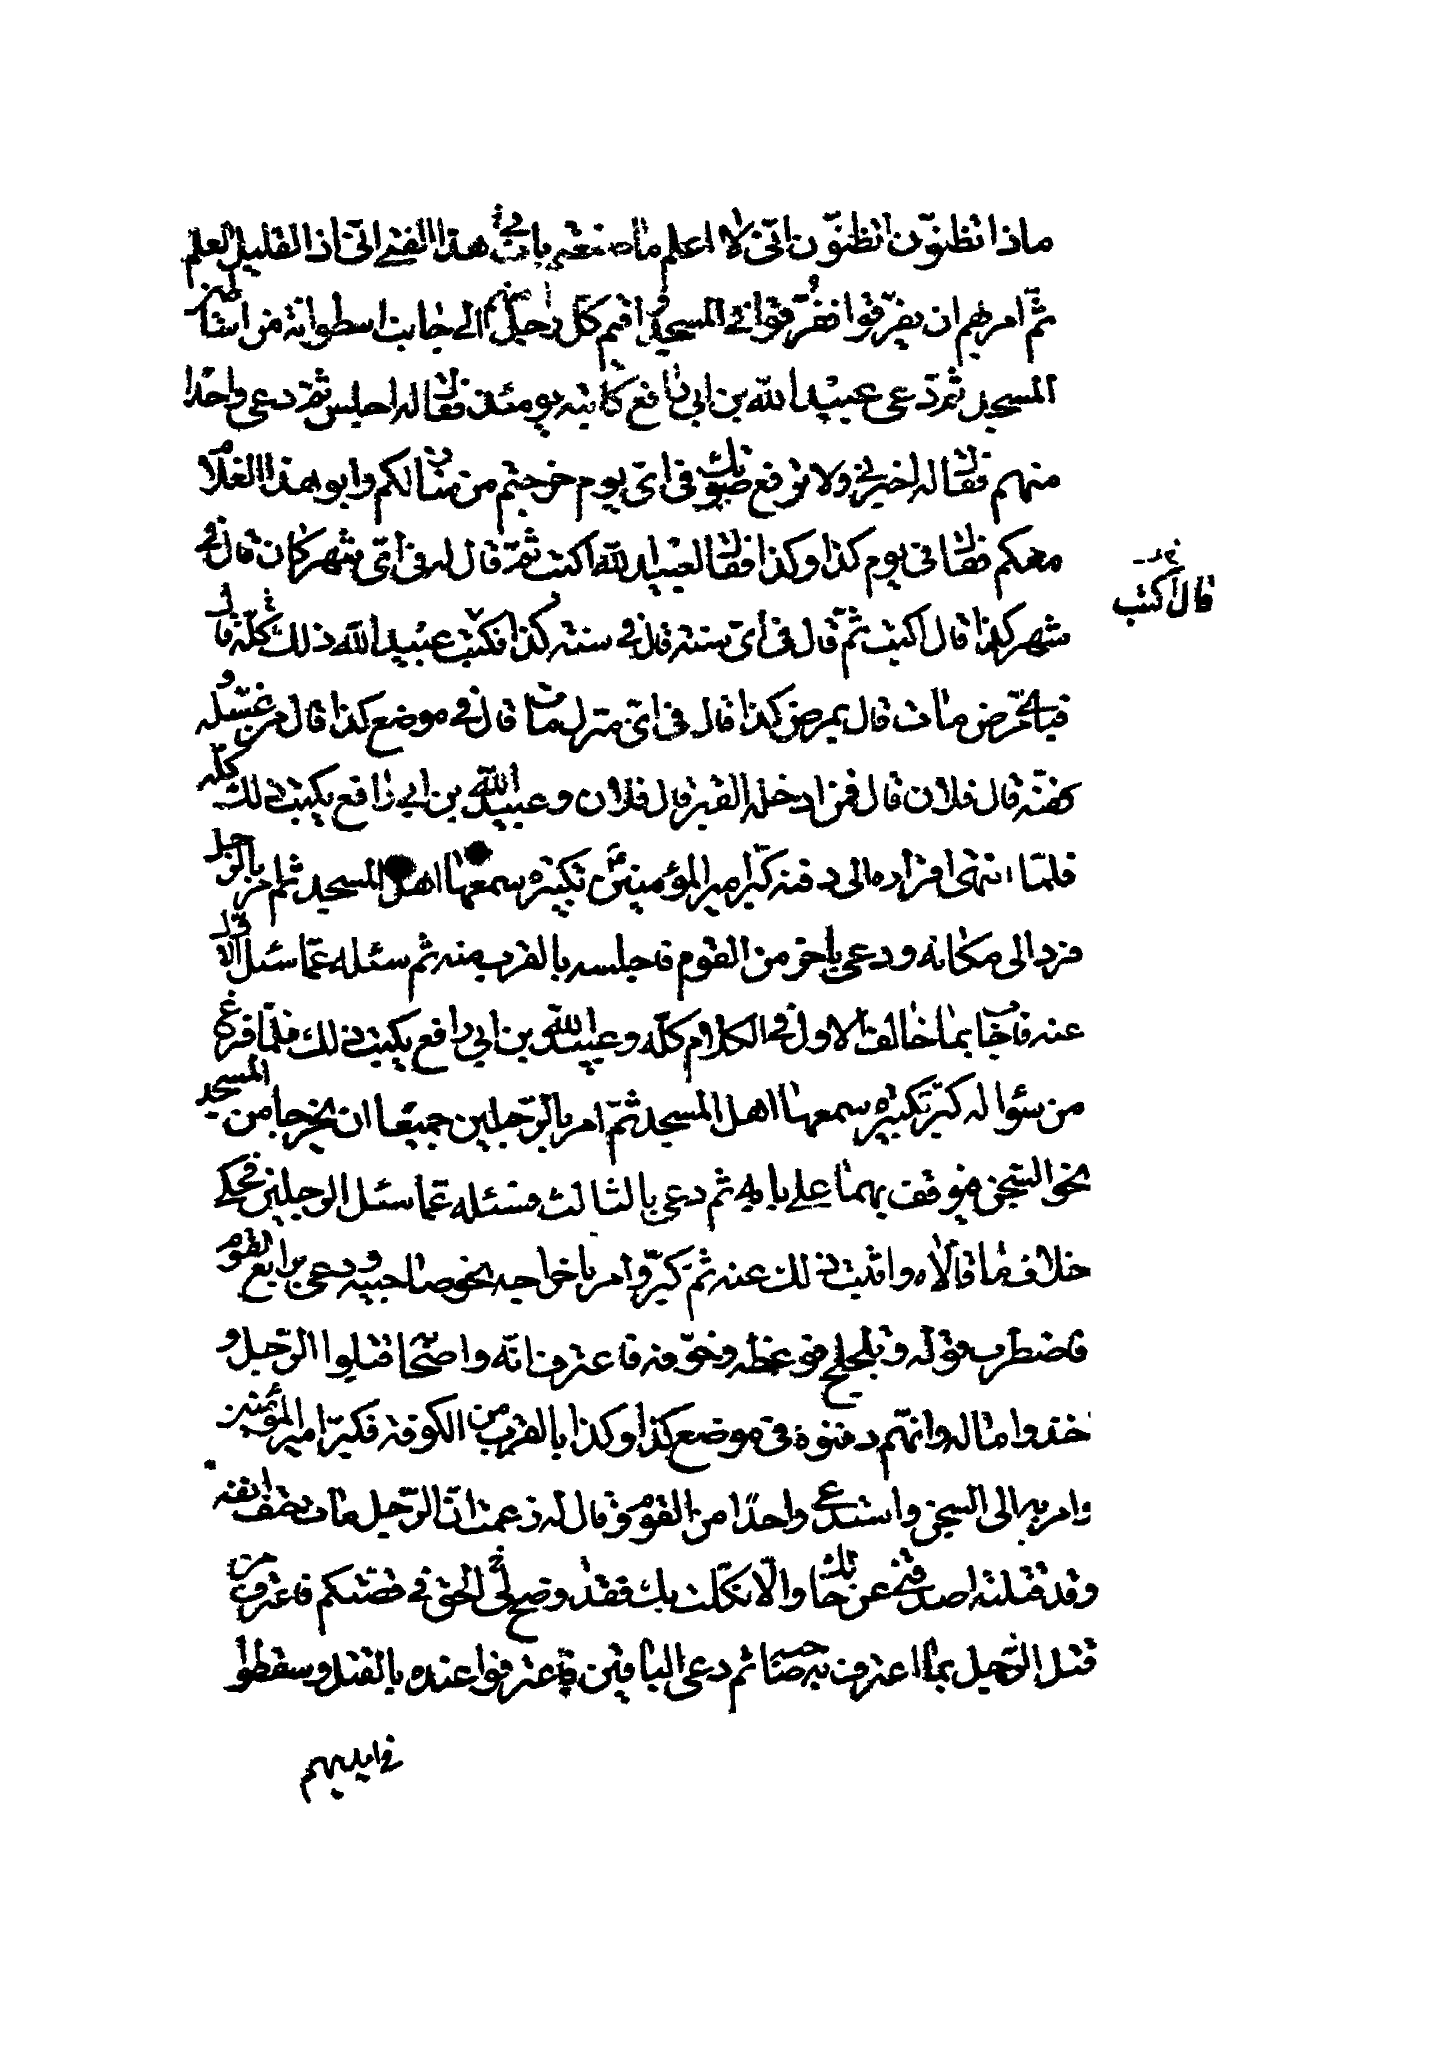 ماذا تظنون اتظنون انى لا اعلم ما صنعتم باب هذا الفتى انى اذا لقليل العلم
ثم امر بهم ان يفرقوا ففرقوا في المسجد واقيم كل رجل منهم الى جانب اسطوانة من اساطين
المسجد ثم دعى عبيد الله بن ابي رافع كاتبه يومئذ فقال له اجلس ثم دعى واحدا
منهم فقال له اخبرني ولا ترفع صوتك في اى يوم خرجتم من منازلكم وابو هذا الغلام
معكم فقال في يوم كذا وكذا فقال لعبيد الله اكتب ثم قال له في اى شهر كان قال في
شهر كذا قال اكتب ثم قال في اى سنة قال في سنة كذا فكتب عبيد الله ذلك كله قال
فباى مرض مات قال بمرض كذا قال في اى منزل مات قال في موضع كذا قال من غسله و
كفنه قال فلان قال فمن ادخله القبر قال فلان وعبيد الله بن ابي رافع يكتب ذلك كله
فلما انتهى اقراره الى دفنه كبر امير المؤمنين تكبيرة سمعها اهل المسجد ثم امر بالرجل
فرد الى مكانه ودعى باخر من القوم فاجلسه بالقرب منه ثم سئله عما سئل الاول
عنه فاجاب بما خالف الاول في الكلام كله وعبيد الله بن ابي رافع يكتب ذلك فلما فرغ
من سؤاله كبر تكبيرة سمعها اهل المسجد ثم امر بالرجلين جميعا ان يخرجا من المسجد
نحو السجن فيوقف بهما على بابه ثم دعى بالثالث فسئله عما سئل الرجلين فحكى
خلاف ما قالاه واثبت ذلك عنه ثم كبر وامر باخراجه نحو صاحبيه ودعى برابع القوم
فاضطرب قوله وتلجلج فوعظه وخوفه فاعترف انه واصحابه قتلوا الرجل و
اخذوا ماله وانهم دفنوه في موضع كذا وكذا بالقرب من الكوفة فكبر امير المؤمنين
وامر به الى السجن واستدعى واحدا من القوم وقال له زعمت ان الرجل مات بحتف انفه
وقد قتلته اصدقني عن حالك والا نكلت بك فقد وضح لى الحق في قصتكم فاعترف من
قتل الرجل بما اعترف به صاحبه ثم دعى الباقين فاعترفوا عنده بالقتل وسقطوا
في ايديهم
قال اكتب